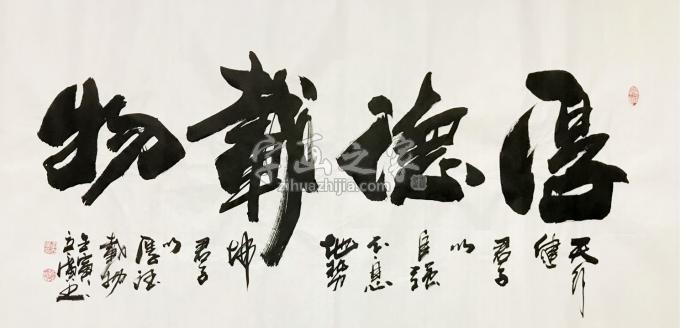 厚德載物
天行
健
君子
以
自强
不息
地勢
坤
君子
以
厚德
載物
壬寅
字画之家
zihuazhijia.com